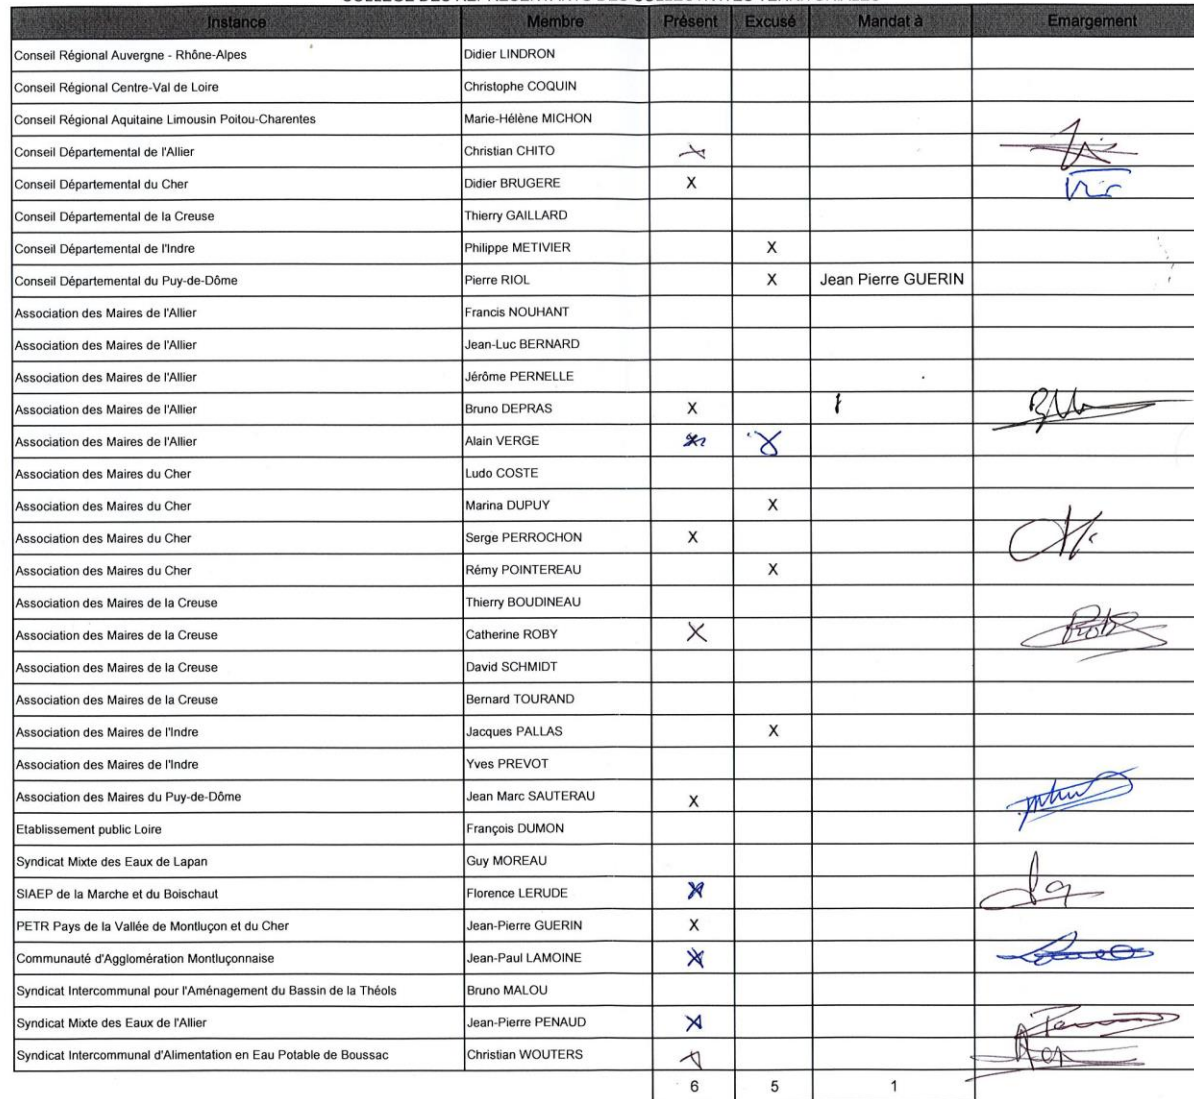 Instance Membre Présent Excusé Mandat à Emargement
Conseil Régional Auvergne - Rhône-Alpes Didier LINDRON
Conseil Régional Centre-Val de Loire Christophe COQUIN
Conseil Régional Aquitaine Limousin Poitou-Charentes Marie-Hélène MICHON
Conseil Départemental de l'Allier Christian CHITO X
Conseil Départemental du Cher Didier BRUGERE X
Conseil Départemental de la Creuse Thierry GAILLARD
Conseil Départemental de l'Indre Philippe METIVIER X
Conseil Départemental du Puy-de-Dôme Pierre RIOL X Jean Pierre GUERIN
Association des Maires de l'Allier Francis NOUHANT
Association des Maires de l'Allier Jean-Luc BERNARD
Association des Maires de l'Allier Jérôme PERNELLE
Association des Maires de l'Allier Bruno DEPRAS X
Association des Maires de l'Allier Alain VERGE X
Association des Maires du Cher Ludo COSTE
Association des Maires du Cher Marina DUPUY X
Association des Maires du Cher Serge PERROCHON X
Association des Maires du Cher Rémy POINTEREAU X
Association des Maires de la Creuse Thierry BOUDINEAU
Association des Maires de la Creuse Catherine ROBY X
Association des Maires de la Creuse David SCHMIDT
Association des Maires de la Creuse Bernard TOURAND
Association des Maires de l'Indre Jacques PALLAS X
Association des Maires de l'Indre Yves PREVOT
Association des Maires du Puy-de-Dôme Jean Marc SAUTERAU X
Etablissement public Loire François DUMON
Syndicat Mixte des Eaux de Lapan Guy MOREAU
SIAEP de la Marche et du Boischaut Florence LERUDE X
PETR Pays de la Vallée de Montluçon et du Cher Jean-Pierre GUERIN X
Communauté d'Agglomération Montluçonnaise Jean-Paul LAMOINE X
Syndicat Intercommunal pour l'Aménagement du Bassin de la Théols Bruno MALOU
Syndicat Mixte des Eaux de l'Allier Jean-Pierre PENAUD X
Syndicat Intercommunal d'Alimentation en Eau Potable de Boussac Christian WOUTERS X
6 5 1